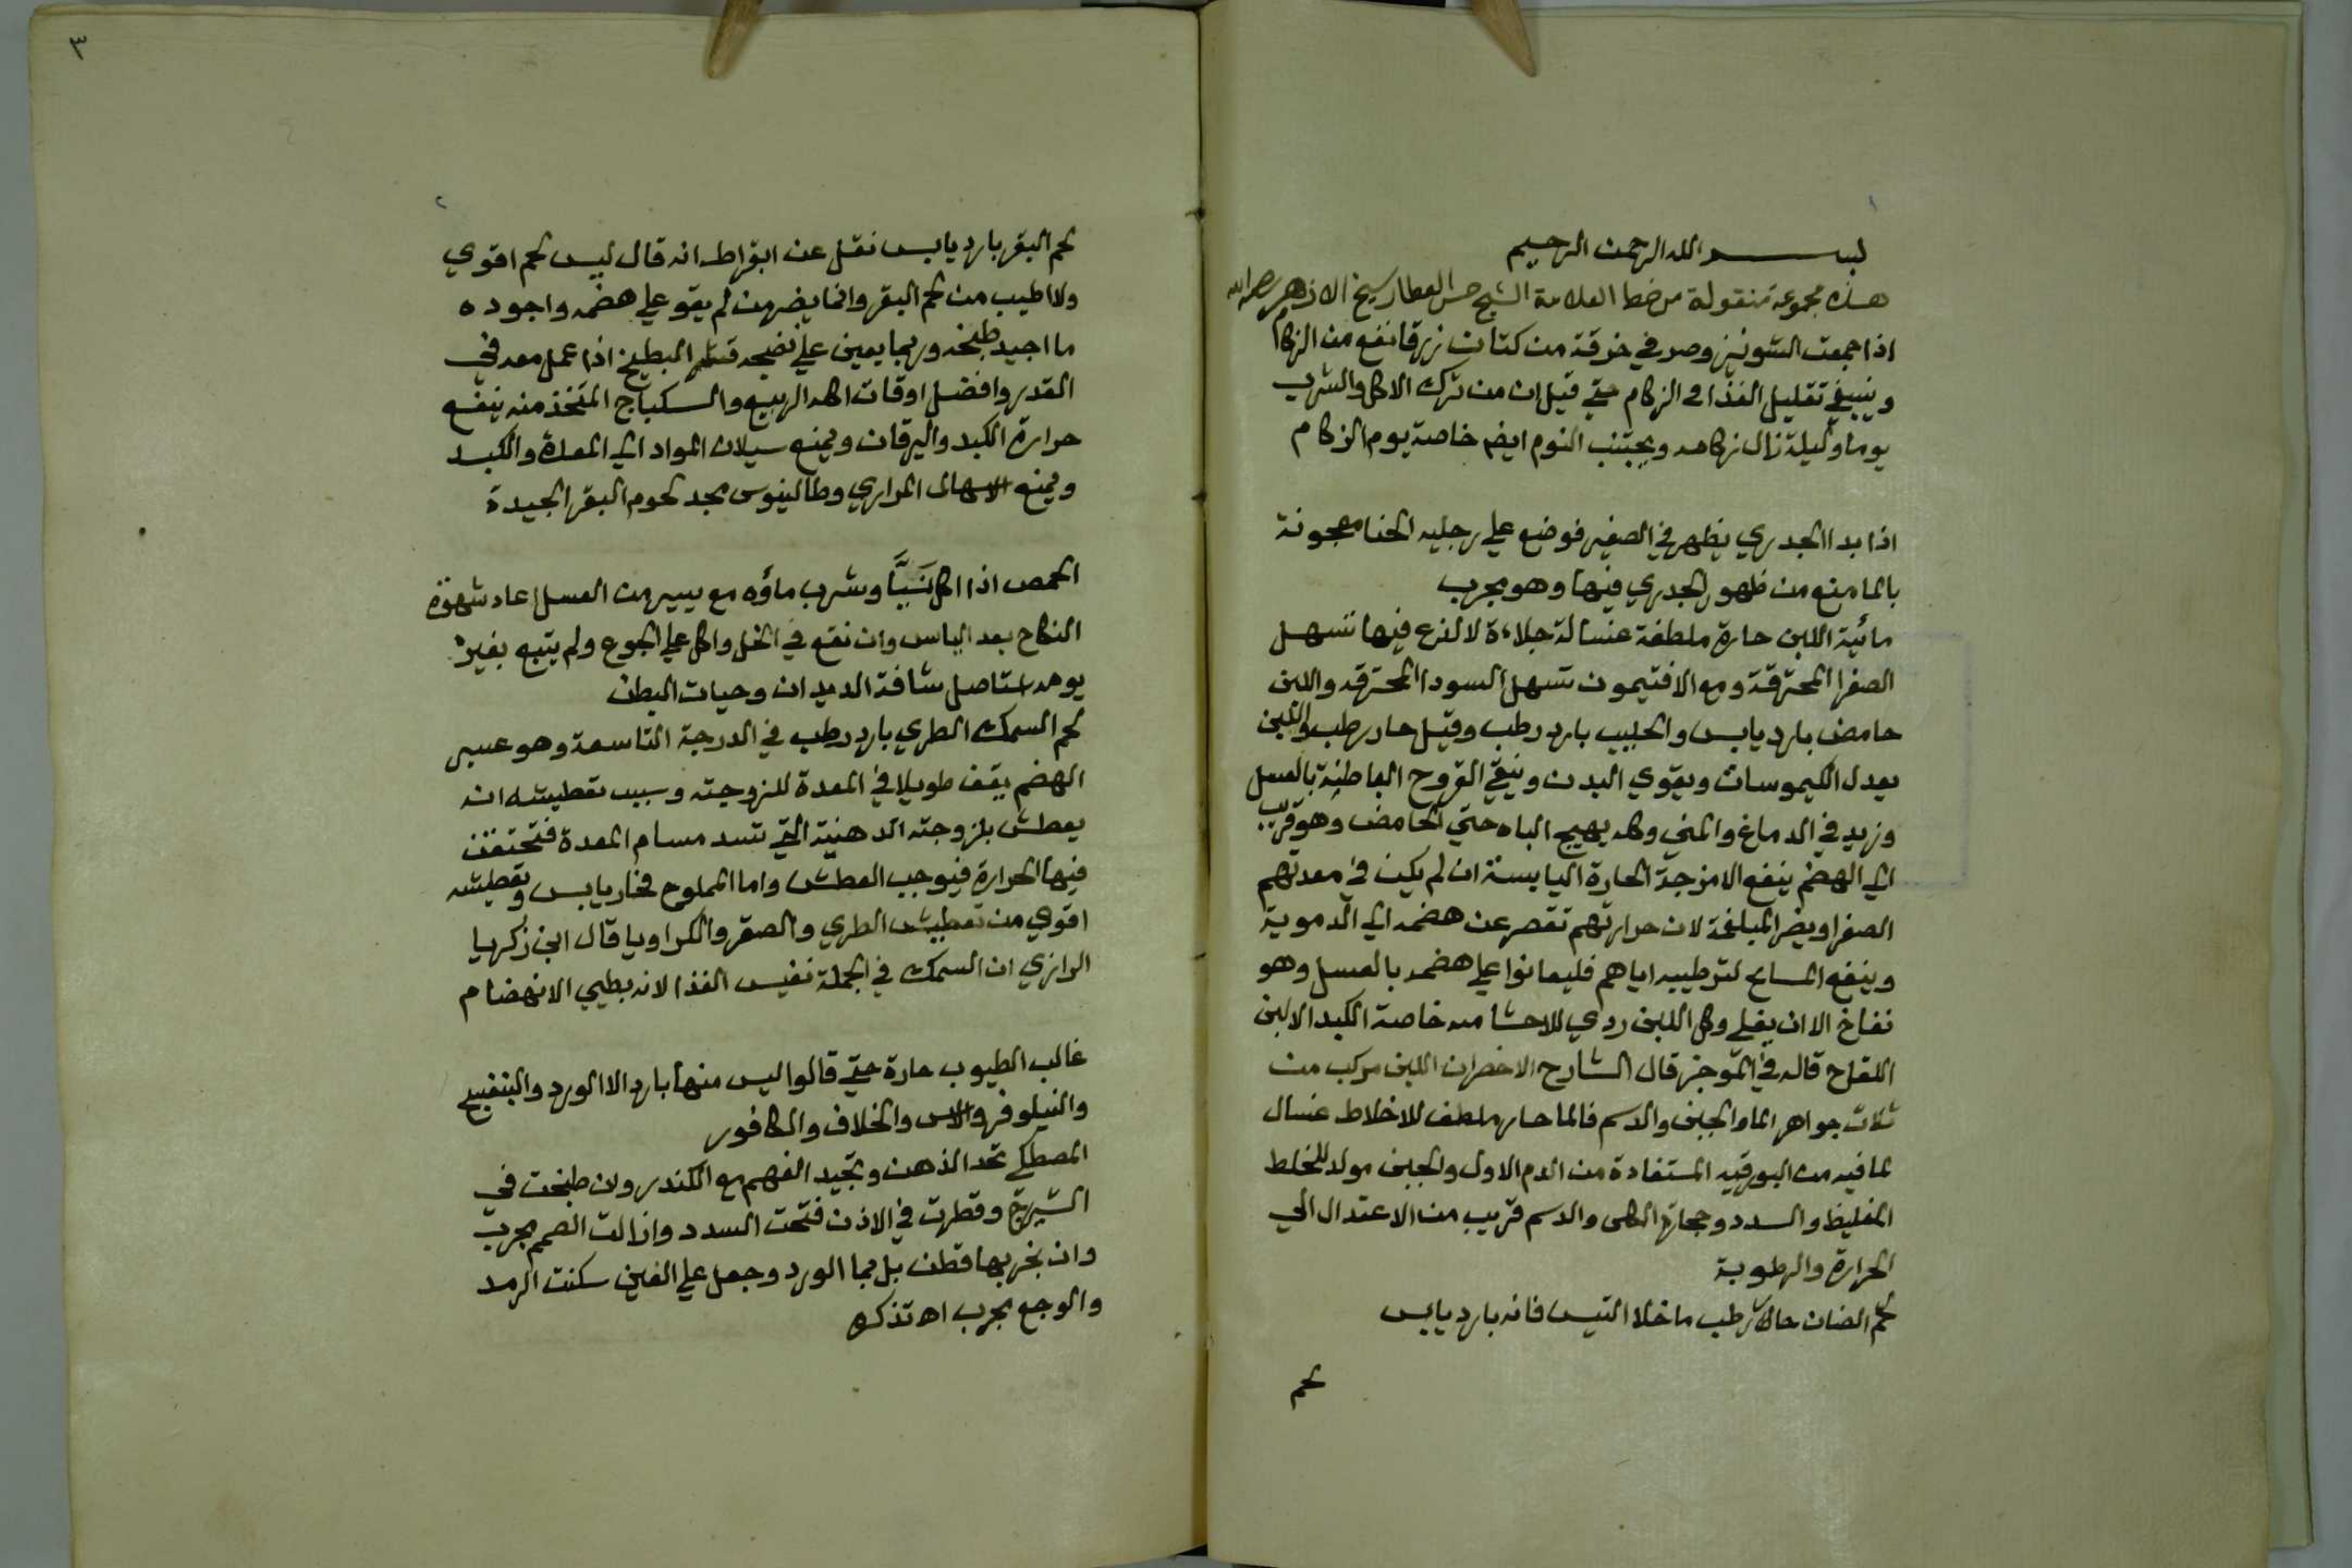 بسم الله الرحمن الرحيم
هذه مجموعة منقولة من خط العلامة الشيخ حسن العطار شيخ الازهر رحمه الله
اذا جمعت الشونيز وصر في خرقة من كتان زرقا نفع من الزكام
وينبغي تقليل الغذا في الزكام حتي قيل ان من ترك الاكل والشرب
يوما وليلة زال زكامه ويجتنب النوم ايضا خاصة يوم الزكام
اذا بدا الجدري يظهر في الصغير فوضع علي رجليه الحنا معجونة
بالما منع من ظهور الجدري فيها وهو مجرب
مائية اللبن حارة ملطفة غسالة جلاءة لا لذع فيها تسهل
الصفرا المحترقة ومع الافتيمون تسهل السودا المحترقه واللبن
حامض بارد يابس والحليب بارد رطب وقيل حار رطب واللبن
يعدل الكيموسات ويقوي البدن وينقي القروح الباطنة بالعسل
وزيد في الدماغ والمني وكله يهيج الباه حتي الحامض وهو قريب
الي الهضم ينفع الامزجة الحارة اليابسة ان لم يكن في معدتهم
الصفرا ويضر المبلغمة لان حرارتهم تقصر عن هضمه الي الدموية
وينفع المسايخ لترطيبه اياهم فليعانوا علي هضمه بالعسل وهو
نفاخ الا ان يغلي وكل اللبن ردي للاحشا منه خاصة الكبد الا لبن
اللقاح قاله في الموجز قال الشارح الاخصران اللبن مركب من
ثلاث جواهر الما والجبن والدسم فالما حار ملطف للاخلاط غسال
لما فيه من البورقيه المستفادة من الدم الاول والجبن مولد للخلط
الغليظ والسدد وحجارة الكلى والدسم قريب من الاعتدال الي
الحرارة والرطوبة
لحم الضان حار رطب ما خلا التيس فانه بارد يابس
لحم
٣
٢
لحم البقر بارد يابس نقل عن ابقراط انه قال ليس لحم اقوي
ولا اطيب من لحم البقر وانما يضر من لم يقو علي هضمه واجوده
ما اجيد طبخه وربما يعين علي نضجه قشر البطيخ اذا عمل معه في
القدر وافضل اوقات اكله الربيع والسكباج المتخذ منه ينفع
حرارة الكبد واليرقان ويمنع سيلان المواد الي المعدة والكبد
ويمنع الاسهال المراري وطالينوس مجد لحوم البقر الجيدة
الحمص اذا اكل نَيّاً وشرب ماؤه مع يسير من العسل اعاد شهوة
النكاح بعد الياس وان نقع في الخل واكل علي الجوع ولم يتبع بغيره
يومه استاصل شافة الديدان وحيات البطن
لحم السمك الطري بارد رطب في الدرجة التاسعة وهو عسير
الهضم يقف طويلا في المعدة للزوجته وسبب تعطيشه انه
يعطش بلزوجته الدهنية التي تسد مسام المعدة فتحتقن
فيها الحرارة فيوجب العطش واما المملوح فحار يابس وتعطيشه
اقوي من تعطيش الطري والصقر والكراويا قال ابن زكريا
الرازي ان السمك في الجملة نفيس الغذا لانه بطيي الانهضام
غالب الطيوب حارة حتي قالوا ليس منها بارد الا الورد والبنفسج
والنيلوفر والاس والخلاف والكافور
المصطكي تحد الذهن وتجيد الفهم مع الكندر وان طبخت في
الشيرج وقطرت في الاذن فتحت السدد وازالت الصمم مجرب
وان بخر بها قطن بل بما الورد وجعل علي العين سكنت الرمد
والوجع مجرب اه تذكره